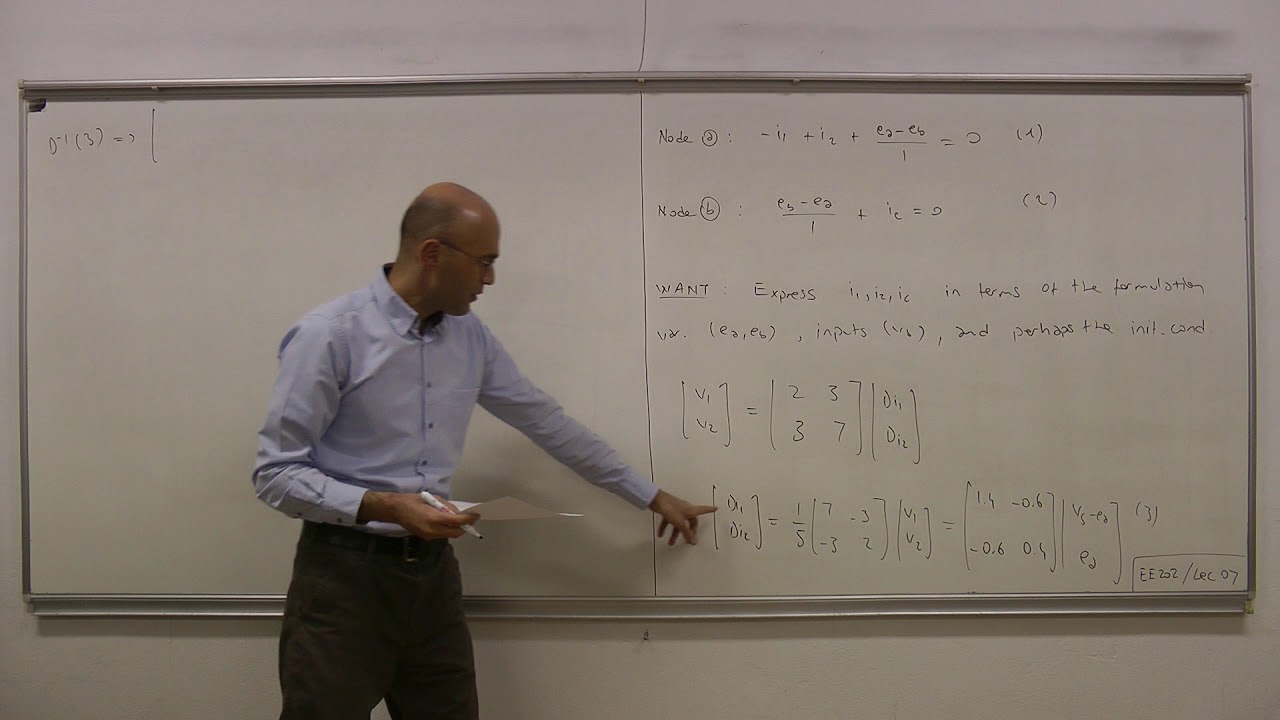 D⁻¹(3) => [
Node ⓐ : -i₁ + i₂ + (e_a - e_b)/1 = 0 (1)
Node ⓑ : (e_b - e_a)/1 + i_c = 0 (2)
WANT : Express i₁, i₂, i_c in terms of the formulation
var. (e_a, e_b), inputs (v_s), and perhaps the init. cond.
[v₁ v₂] = [2 3; 3 7] [Di₁ Di₂]
[Di₁ Di₂] = 1/5 [7 -3; -3 2] [v₁ v₂] = [1.4 -0.6; -0.6 0.4] [v_s - e_a; e_a] (3)
EE202/Lec 07